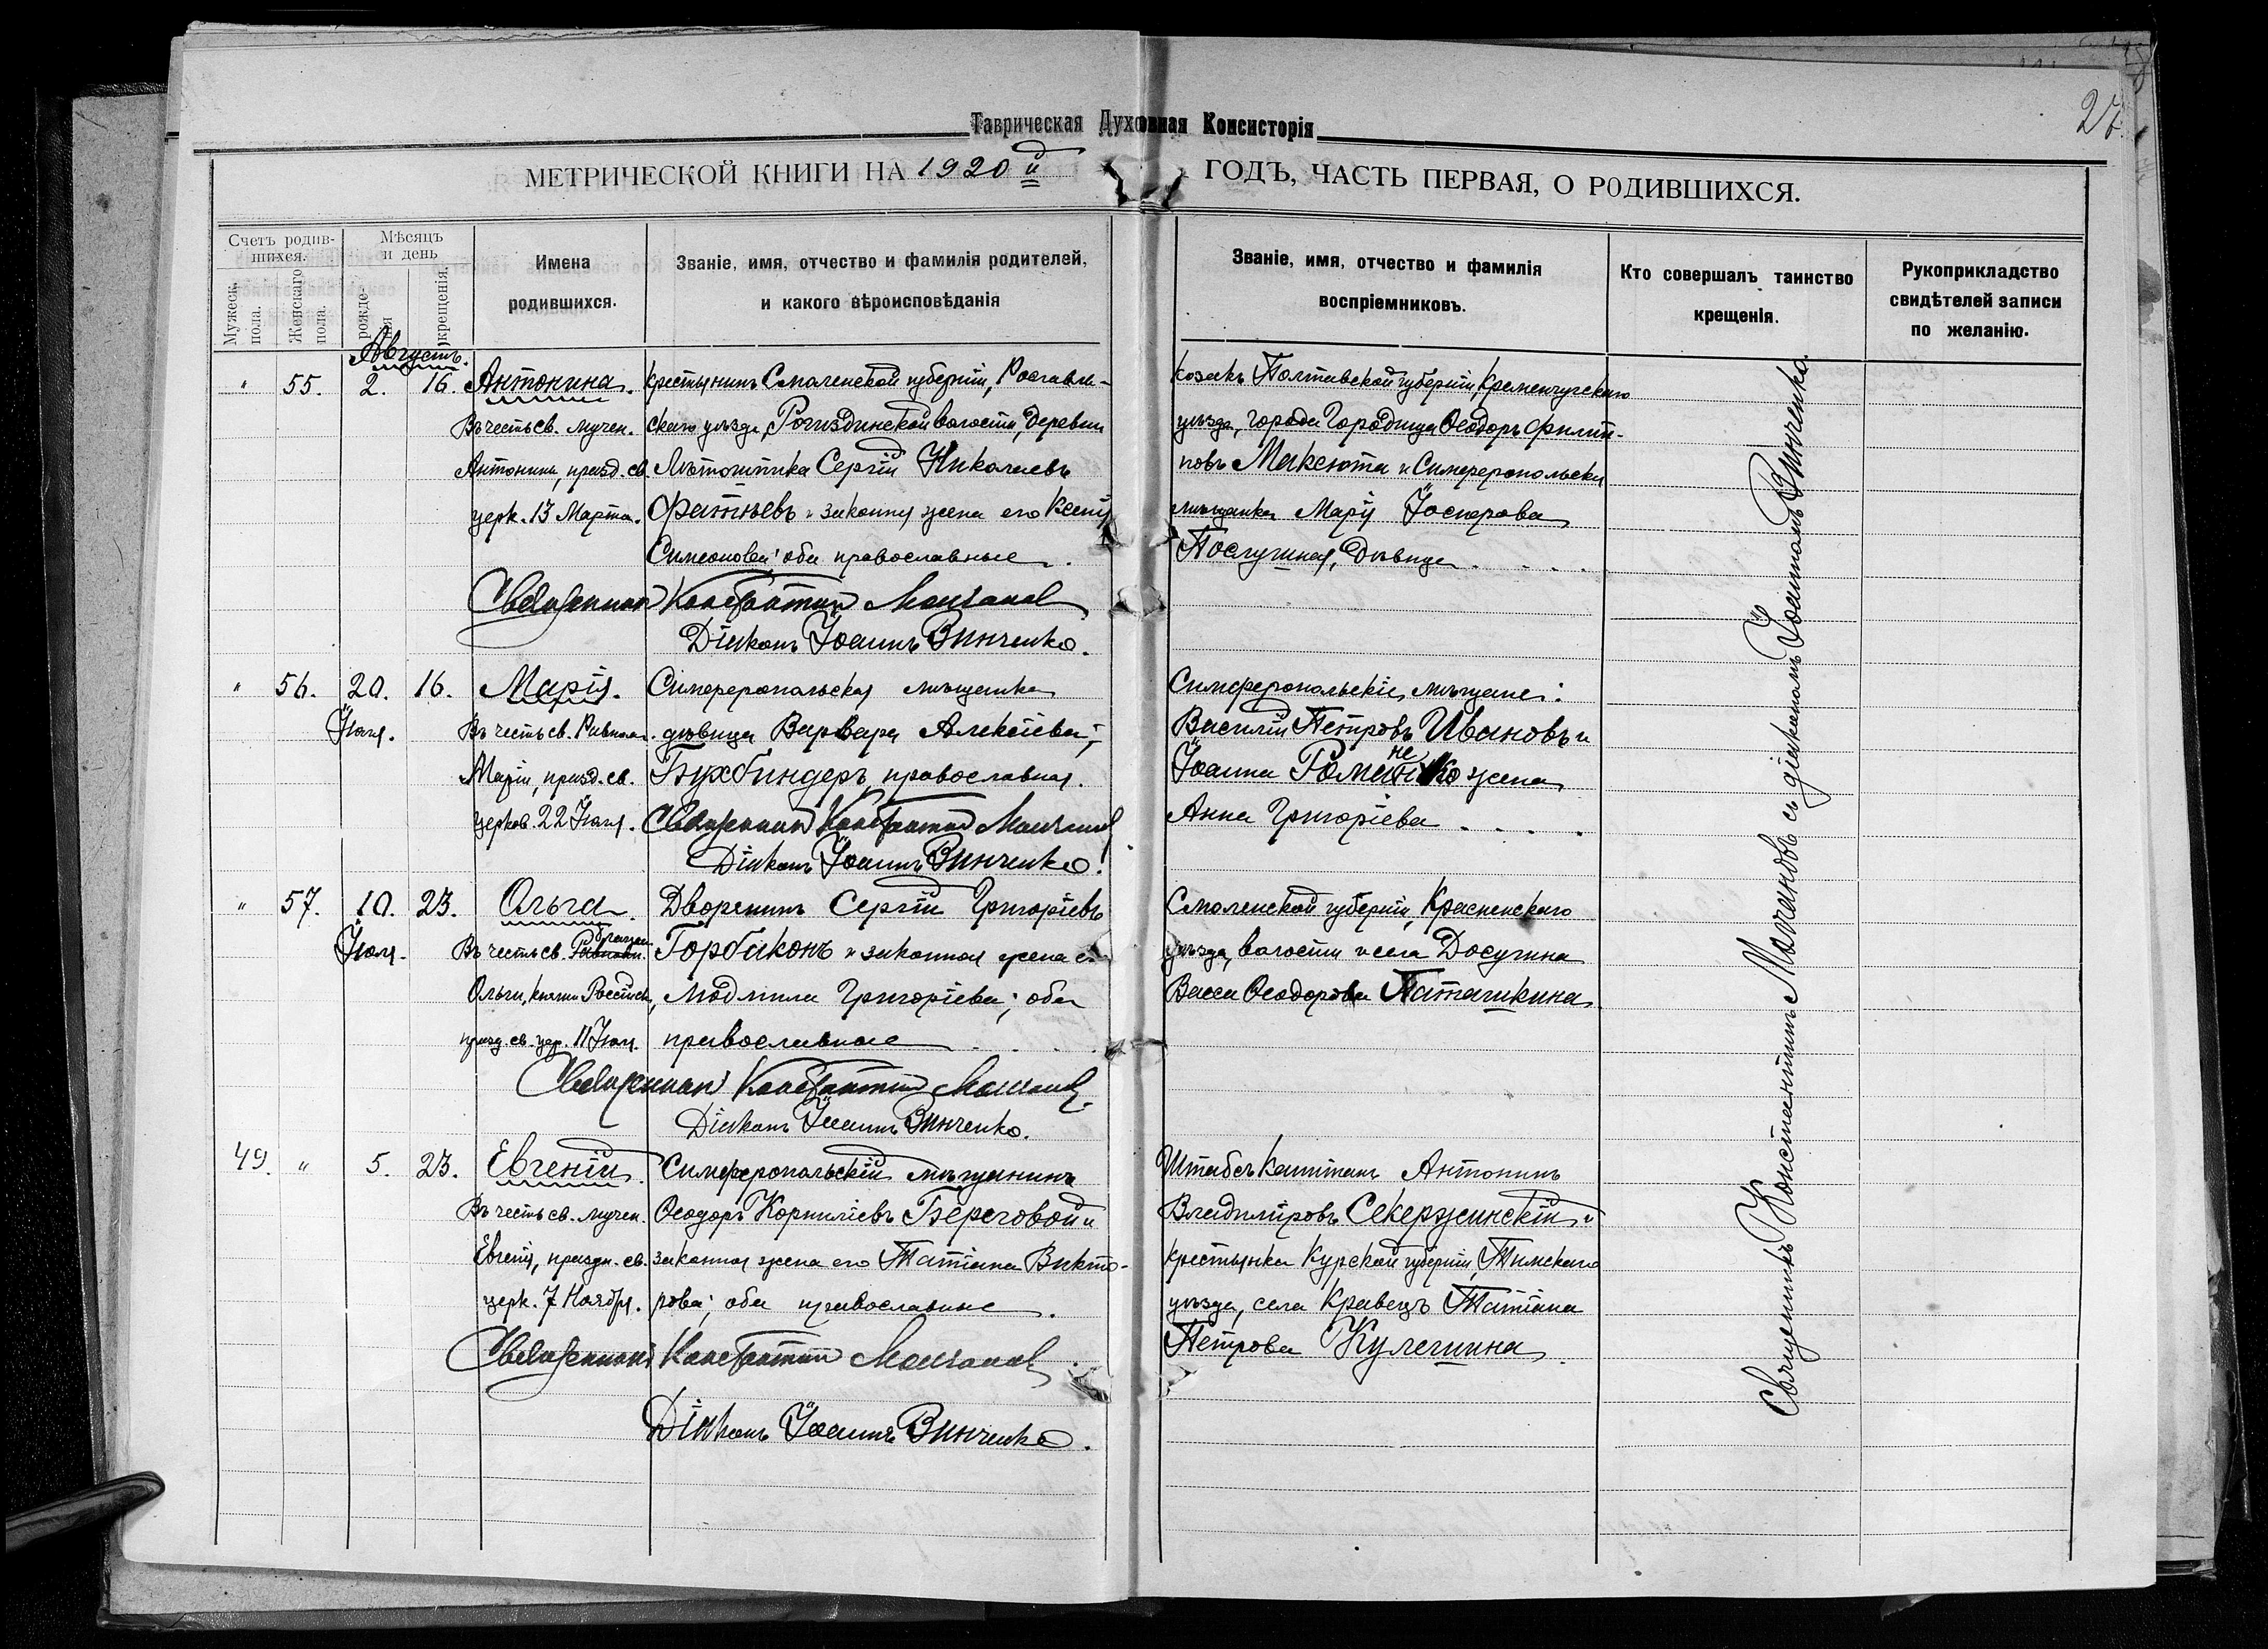 27.
Таврическая Духовная Консисторія
МЕТРИЧЕСКОЙ КНИГИ НА 1920й ГОДЪ, ЧАСТЬ ПЕРВАЯ, О РОДИВШИХСЯ.
Счетъ родив-
шихся.
Мужеск. пола.
Женскаго пола.
Мѣсяцъ
и день
рожде-
нія
крещенія.
Имена
родившихся.
Званіе, имя, отчество и фамилія родителей,
и какого вѣроисповѣданія
Званіе, имя, отчество и фамилія
воспріемниковъ.
Кто совершалъ таинство
крещенія.
Рукоприкладство
свидѣтелей записи
по желанію.
Августъ.
" 55. 2. 16. Антонина.
Въ честь св. мучен.
Антонины, празд. св.
церк. 13 Марта.
Крестьянинъ Смоленской губерніи, Рославль-
скаго уѣзда, волости, деревни
Сергій Николаевъ
Фатѣевъ и законная жена его Ксенія
Симеонова; оба православные.
Священникъ Константинъ Молчановъ
Діаконъ Іоаннъ Винченко.
Козакъ Полтавской губерніи, Кременчугскаго
уѣзда, города Городища Ѳеодоръ Филип-
повъ Максюта и Симферопольская
мѣщанка Марія
дѣвица
" 56. 20. 16. Марія.
Іюля.
Въ честь св. Равноап.
Маріи, празд. св.
церков. 22 Іюля.
Симферопольская мѣщанка
дѣвица Варвара Алексіева
Бухбиндеръ, православная.
Священникъ Константинъ Молчановъ
Діаконъ Іоаннъ Винченко.
Симферопольскіе мѣщане:
Василій Петровъ Ивановъ и
Іоанна Романенко жена
Анна Григоріева
" 57. 10. 23. Ольга.
Іюля.
Въ честь св.
Ольги, княгини Россійск.,
празд. св. цер. 11 Іюля.
Дворянинъ Сергій Григоріевъ
Горбиконъ и законная жена его
Людмила Григоріева; оба
православные
Священникъ Константинъ Молчановъ
Діаконъ Іоаннъ Винченко.
Смоленской губерніи, Красненскаго
уѣзда, волости и села Досугина
Васса Ѳеодорова Паташкина
49. " 5. 23. Евгеній.
Въ честь св. мучен.
Евгенія, праздн. св.
церк. 7 Ноября.
Симферопольскій мѣщанинъ
Ѳеодоръ Корниліевъ Береговой и
законная жена его Татіана Викто-
рова; оба православные.
Священникъ Константинъ Молчановъ
Діаконъ Іоаннъ Винченко.
Штабсъ Капитанъ Антонинъ
Владиміровъ Секержинскій и
крестьянка Курской губерніи, Тимскаго
уѣзда, села Кривецъ Татіана
Петрова Кулешина
Священникъ Константинъ Молчановъ съ діакономъ Іоанномъ Винченко.